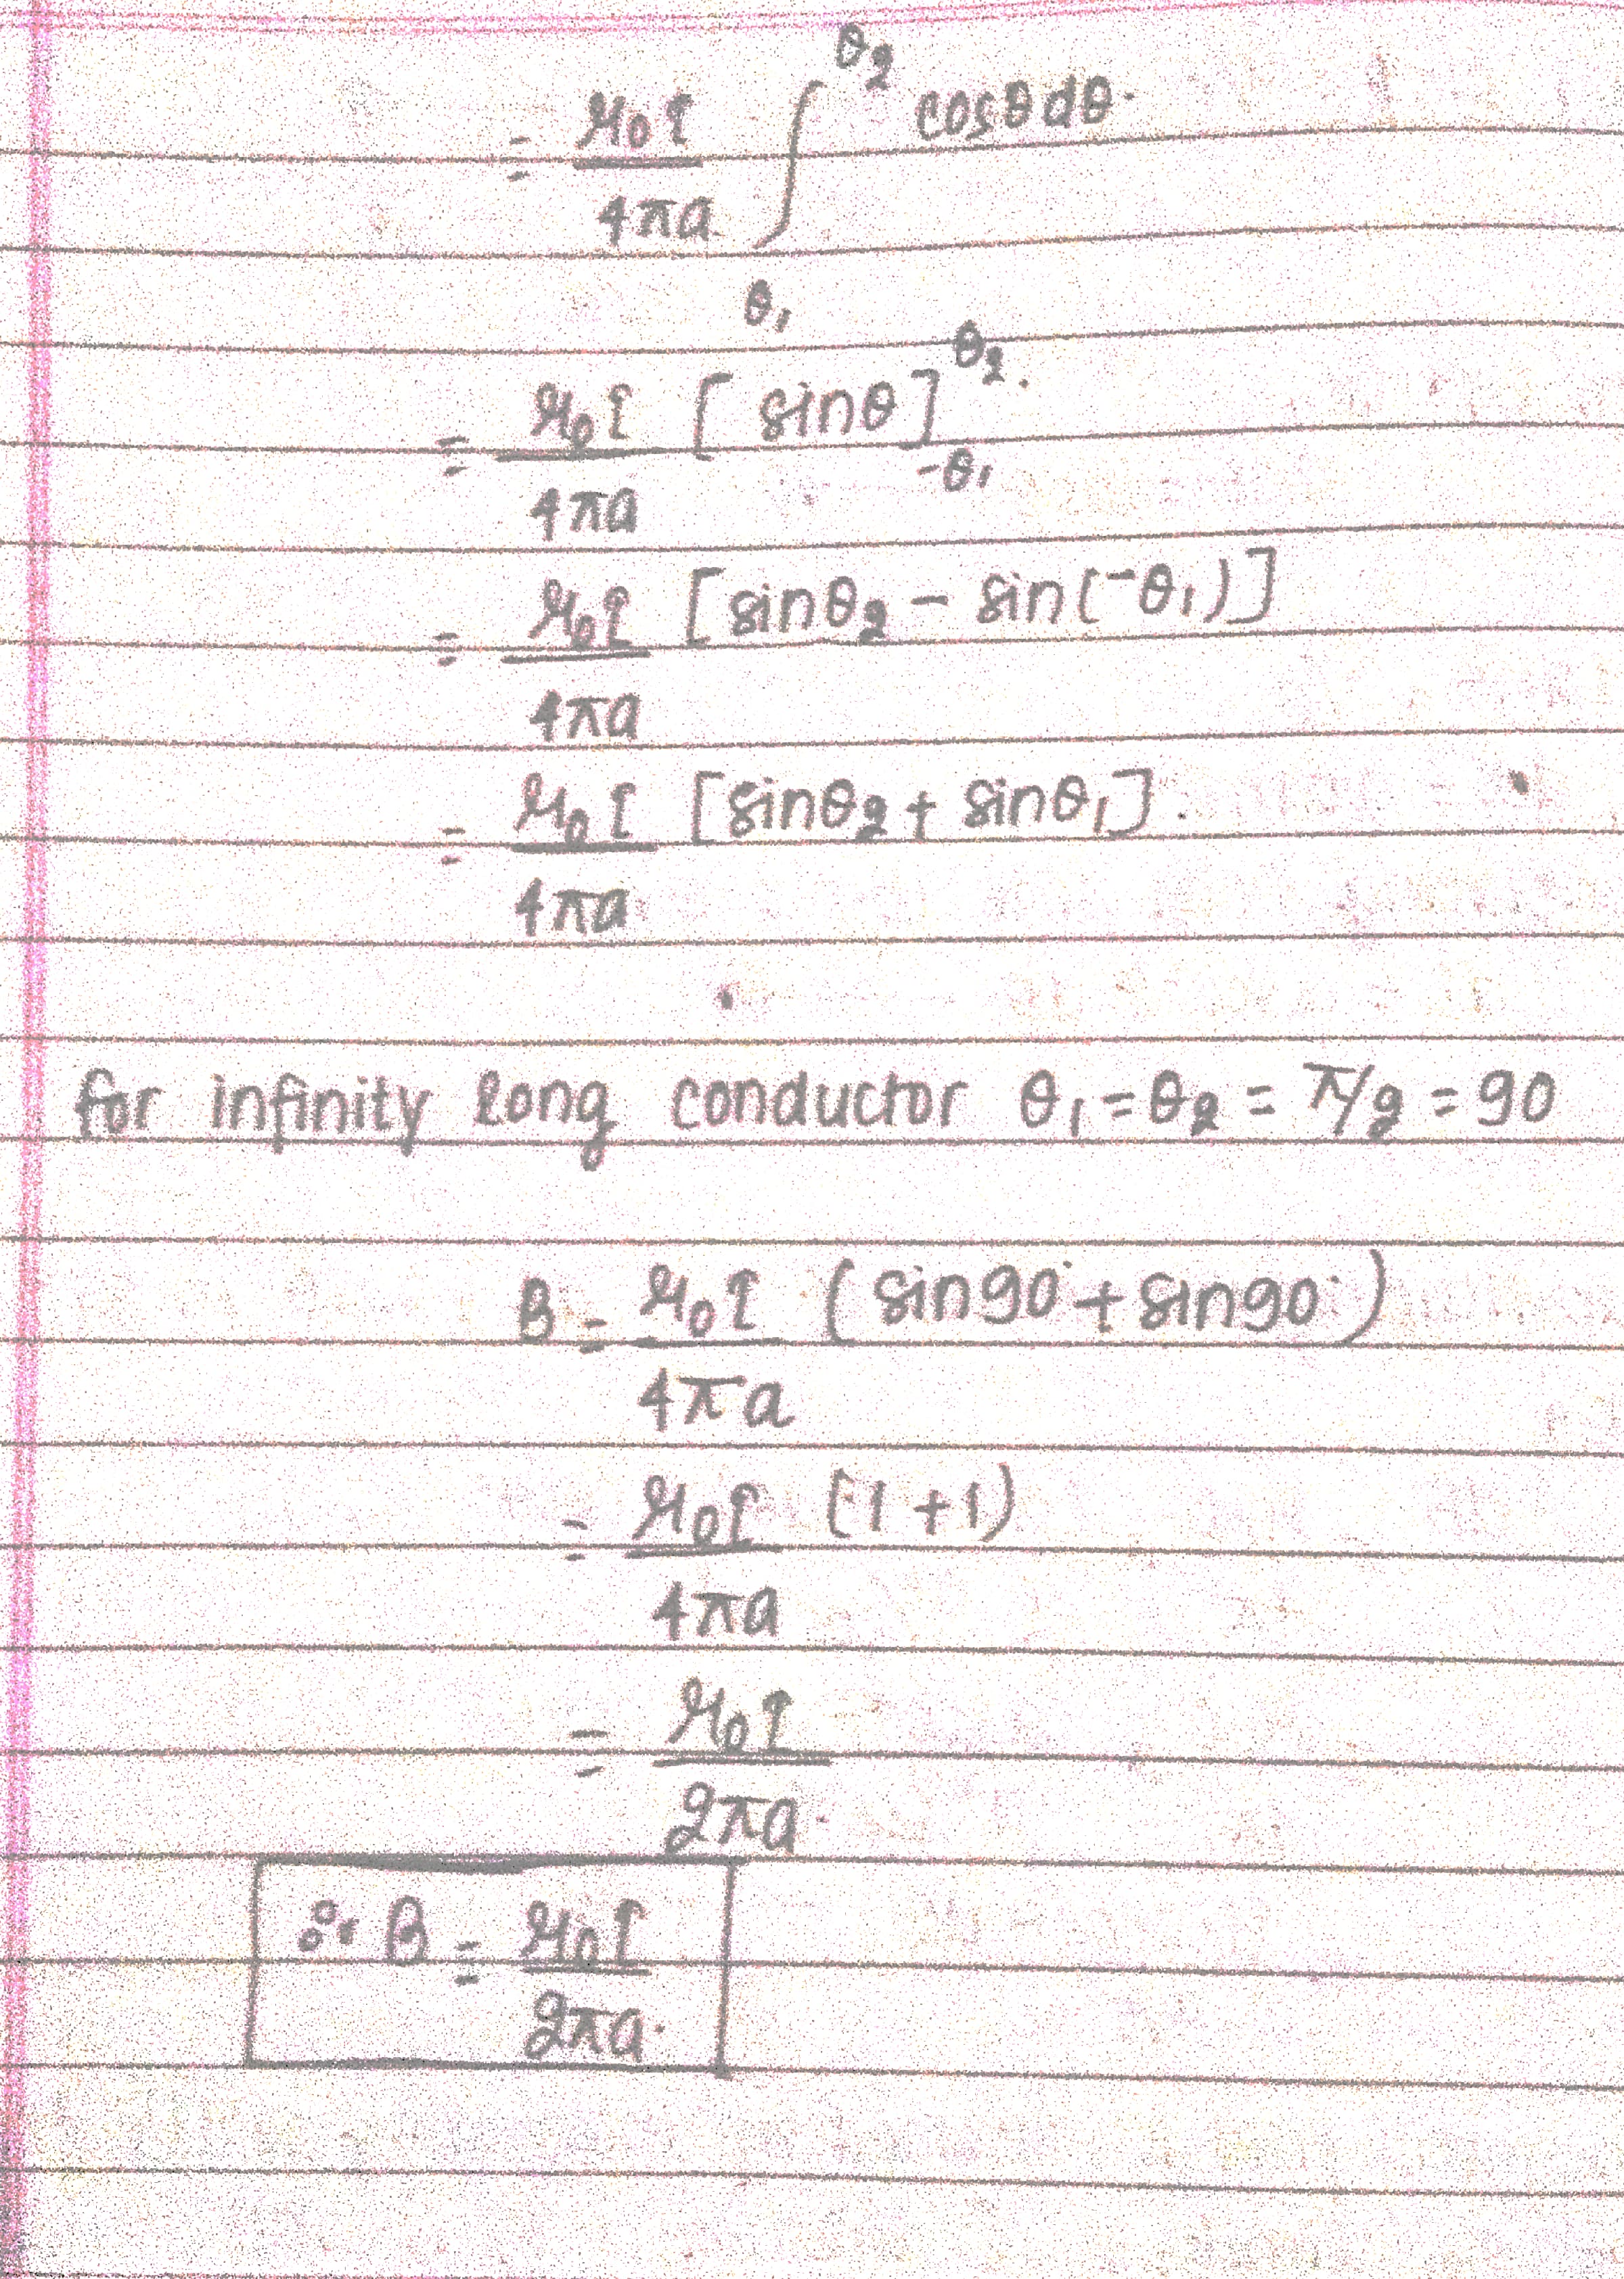 = μ₀I/4πa ∫_θ₁^θ₂ cosθdθ.
= μ₀I/4πa [sinθ]_-θ₁^θ₂.
= μ₀I/4πa [sinθ₂ - sin(-θ₁)]
= μ₀I/4πa [sinθ₂ + sinθ₁].
for infinity long conductor θ₁ = θ₂ = π/2 = 90
B = μ₀I/4πa (sin90° + sin90°)
= μ₀I/4πa (1 + 1)
= μ₀I/2πa.
∴ B = μ₀I/2πa.